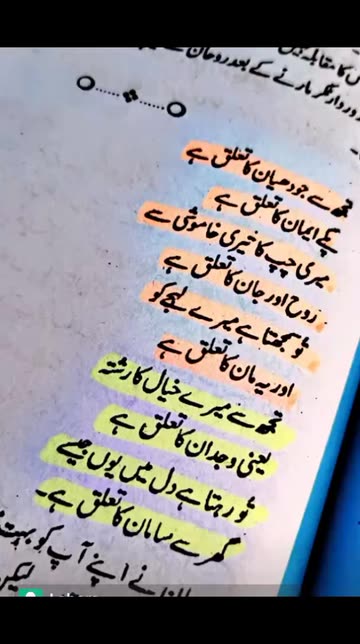 کا مقابلہ نہیں
زوردار ٹکر مارنے کے بعد روحان نے
تجھ سے جو دھیان کا تعلق ہے
پکے ایمان کا تعلق ہے
میری چپ کا تیری خاموشی سے
روح اور جان کا تعلق ہے
تو سمجھتا ہے میرے لہجے کو
اور یہ مان کا تعلق ہے
تجھ سے میرے خیال کا رشتہ
یعنی وجدان کا تعلق ہے
تو رہتا ہے دل میں یوں جیسے
گھر سے سامان کا تعلق ہے۔
نے اپنے آپ کو بہت
لیکن